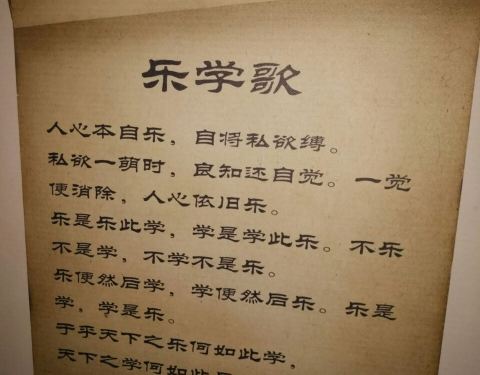 乐学歌
人心本自乐，自将私欲缚。
私欲一萌时，良知还自觉。一觉
便消除，人心依旧乐。
乐是乐此学，学是学此乐。不乐
不是学，不学不是乐。
乐便然后学，学便然后乐。乐是
学，学是乐。
于乎天下之乐何如此学，
天下之学何如此